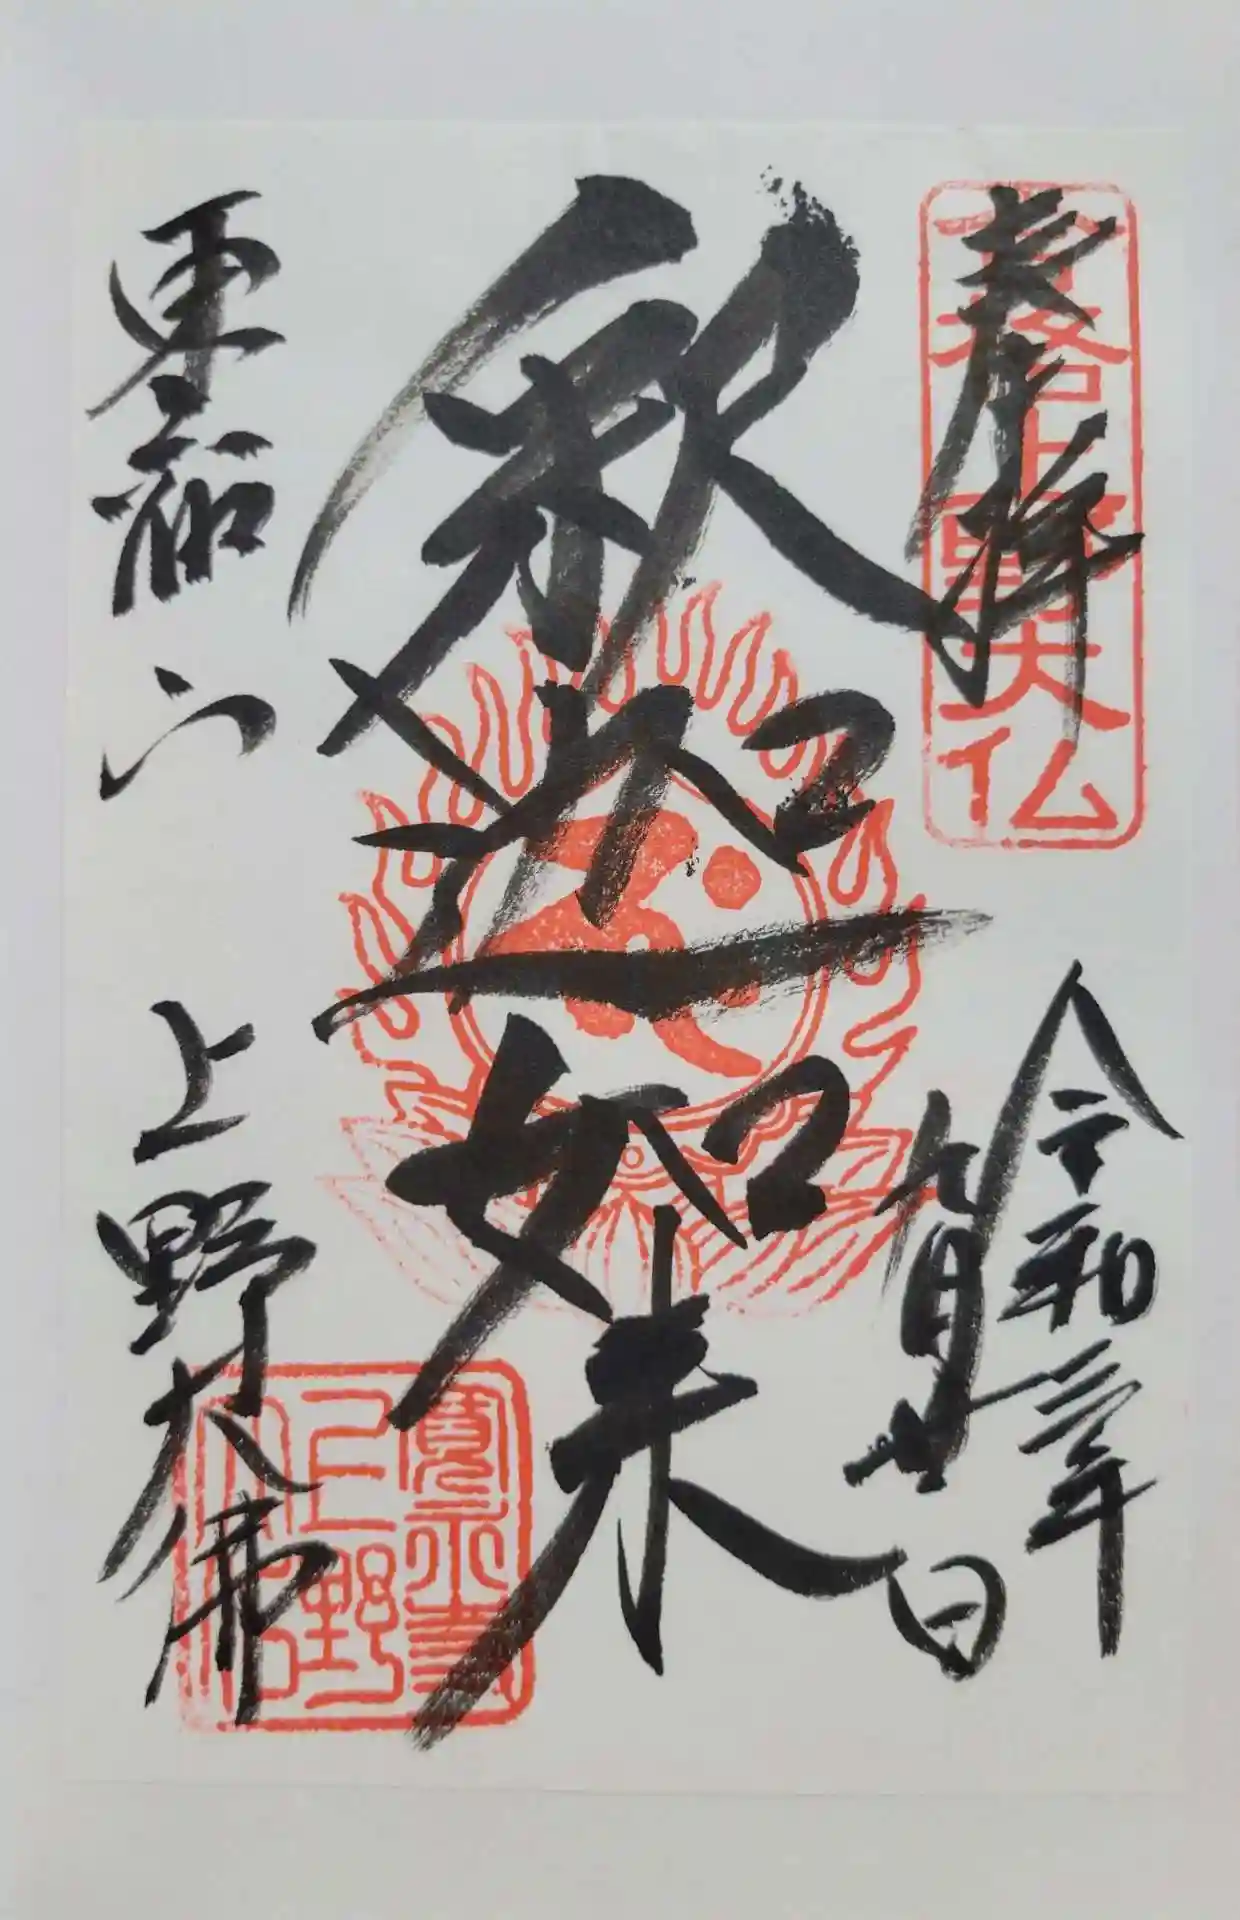 奉拝
合格上野大仏
令和三年
九月廿日
釈迦如来
東叡山
上野大佛
寛永寺
上野
大佛